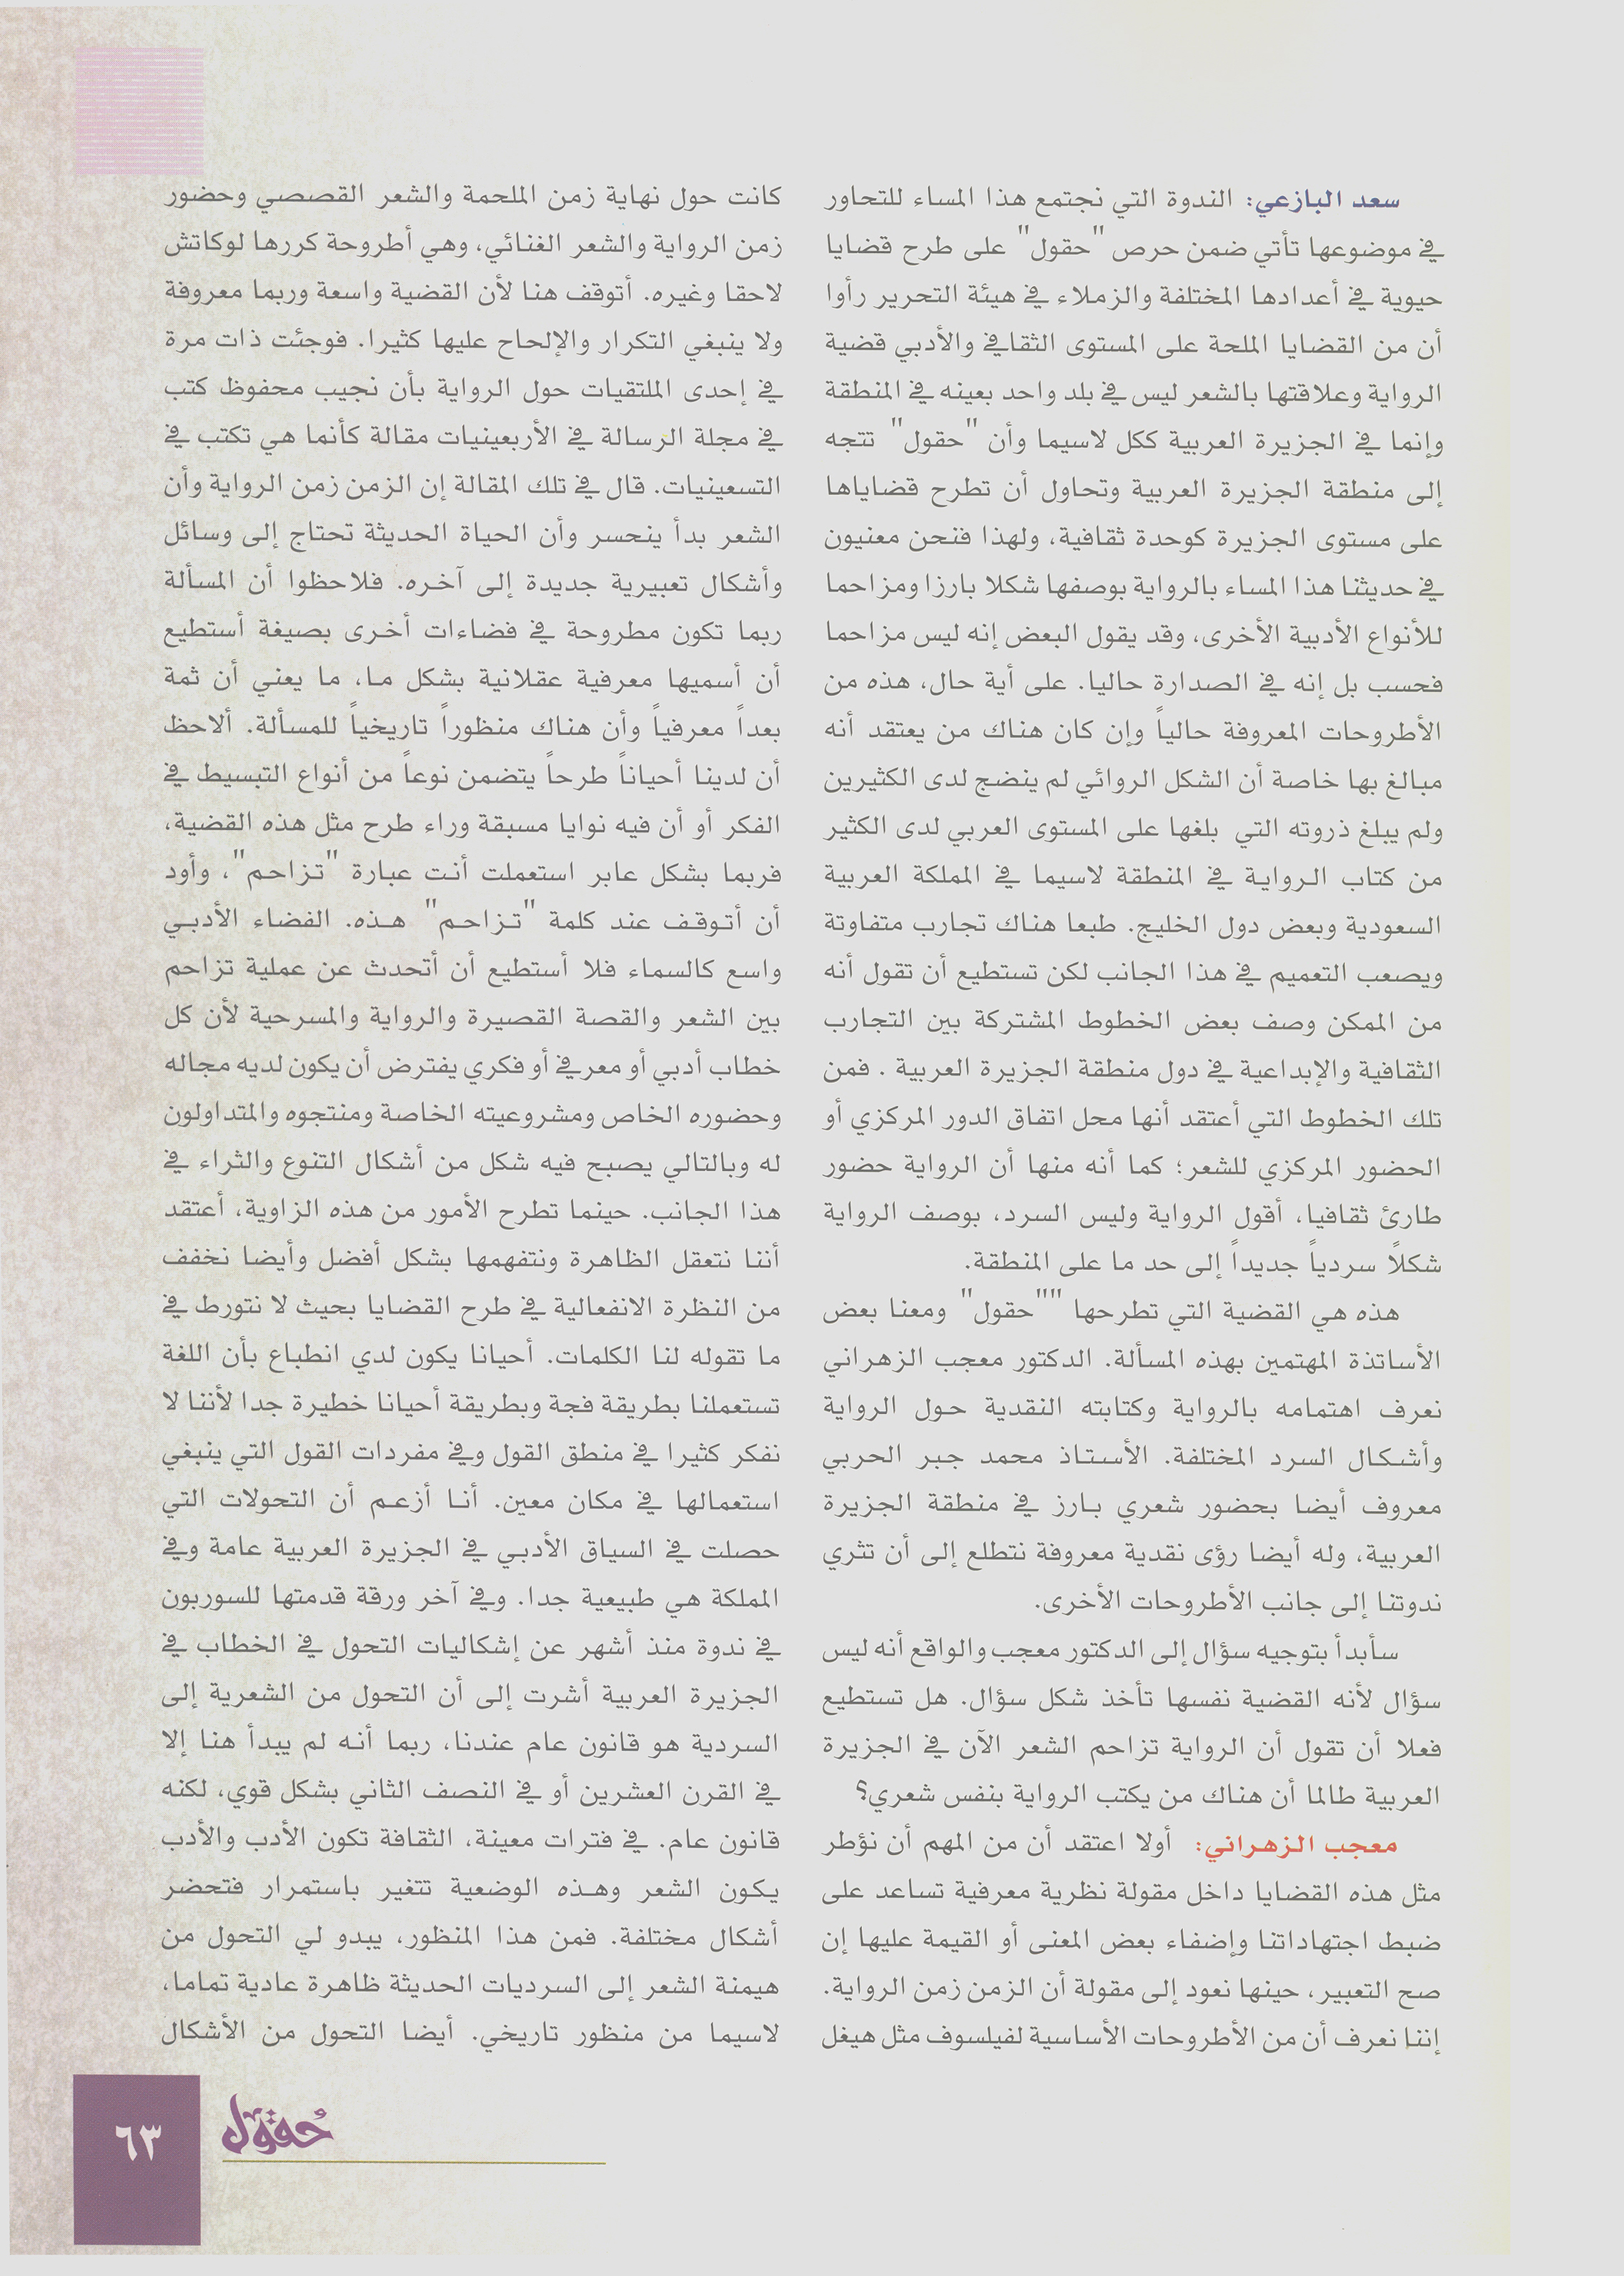 سعد البازعي: الندوة التي نجتمع هذا المساء للتحاور
في موضوعها تأتي ضمن حرص "حقول" على طرح قضايا
حيوية في أعدادها المختلفة والزملاء في هيئة التحرير رأوا
أن من القضايا الملحة على المستوى الثقافي والأدبي قضية
الرواية وعلاقتها بالشعر ليس في بلد واحد بعينه في المنطقة
وإنما في الجزيرة العربية ككل لاسيما وأن "حقول" تتجه
إلى منطقة الجزيرة العربية وتحاول أن تطرح قضاياها
على مستوى الجزيرة كوحدة ثقافية، ولهذا فنحن معنيون
في حديثنا هذا المساء بالرواية بوصفها شكلا بارزا ومزاحما
للأنواع الأدبية الأخرى، وقد يقول البعض إنه ليس مزاحما
فحسب بل إنه في الصدارة حاليا. على أية حال، هذه من
الأطروحات المعروفة حالياً وإن كان هناك من يعتقد أنه
مبالغ بها خاصة أن الشكل الروائي لم ينضج لدى الكثيرين
ولم يبلغ ذروته التي بلغها على المستوى العربي لدى الكثير
من كتاب الرواية في المنطقة لاسيما في المملكة العربية
السعودية وبعض دول الخليج. طبعا هناك تجارب متفاوتة
ويصعب التعميم في هذا الجانب لكن تستطيع أن تقول أنه
من الممكن وصف بعض الخطوط المشتركة بين التجارب
الثقافية والإبداعية في دول منطقة الجزيرة العربية . فمن
تلك الخطوط التي أعتقد أنها محل اتفاق الدور المركزي أو
الحضور المركزي للشعر؛ كما أنه منها أن الرواية حضور
طارئ ثقافيا، أقول الرواية وليس السرد، بوصف الرواية
شكلاً سردياً جديداً إلى حد ما على المنطقة.
هذه هي القضية التي تطرحها ""حقول" ومعنا بعض
الأساتذة المهتمين بهذه المسألة. الدكتور معجب الزهراني
نعرف اهتمامه بالرواية وكتابته النقدية حول الرواية
وأشكال السرد المختلفة. الأستاذ محمد جبر الحربي
معروف أيضا بحضور شعري بارز في منطقة الجزيرة
العربية، وله أيضا رؤى نقدية معروفة نتطلع إلى أن تثري
ندوتنا إلى جانب الأطروحات الأخرى.
سأبدأ بتوجيه سؤال إلى الدكتور معجب والواقع أنه ليس
سؤال لأنه القضية نفسها تأخذ شكل سؤال. هل تستطيع
فعلا أن تقول أن الرواية تزاحم الشعر الآن في الجزيرة
العربية طالما أن هناك من يكتب الرواية بنفس شعري؟
معجب الزهراني: أولا اعتقد أن من المهم أن نؤطر
مثل هذه القضايا داخل مقولة نظرية معرفية تساعد على
ضبط اجتهاداتنا وإضفاء بعض المعنى أو القيمة عليها إن
صح التعبير، حينها نعود إلى مقولة أن الزمن زمن الرواية.
إننا نعرف أن من الأطروحات الأساسية لفيلسوف مثل هيغل
كانت حول نهاية زمن الملحمة والشعر القصصي وحضور
زمن الرواية والشعر الغنائي، وهي أطروحة كررها لوكاتش
لاحقا وغيره. أتوقف هنا لأن القضية واسعة وربما معروفة
ولا ينبغي التكرار والإلحاح عليها كثيرا. فوجئت ذات مرة
في إحدى الملتقيات حول الرواية بأن نجيب محفوظ كتب
في مجلة الرسالة في الأربعينيات مقالة كأنما هي تكتب في
التسعينيات. قال في تلك المقالة إن الزمن زمن الرواية وأن
الشعر بدأ ينحسر وأن الحياة الحديثة تحتاج إلى وسائل
وأشكال تعبيرية جديدة إلى آخره. فلاحظوا أن المسألة
ربما تكون مطروحة في فضاءات أخرى بصيغة أستطيع
أن أسميها معرفية عقلانية بشكل ما، ما يعني أن ثمة
بعداً معرفياً وأن هناك منظوراً تاريخياً للمسألة. ألاحظ
أن لدينا أحياناً طرحاً يتضمن نوعاً من أنواع التبسيط في
الفكر أو أن فيه نوايا مسبقة وراء طرح مثل هذه القضية،
فربما بشكل عابر استعملت أنت عبارة "تزاحم"، وأود
أن أتوقف عند كلمة "تزاحم" هذه. الفضاء الأدبي
واسع كالسماء فلا أستطيع أن أتحدث عن عملية تزاحم
بين الشعر والقصة القصيرة والرواية والمسرحية لأن كل
خطاب أدبي أو معرفي أو فكري يفترض أن يكون لديه مجاله
وحضوره الخاص ومشروعيته الخاصة ومنتجوه والمتداولون
له وبالتالي يصبح فيه شكل من أشكال التنوع والثراء في
هذا الجانب. حينما تطرح الأمور من هذه الزاوية، أعتقد
أننا نتعقل الظاهرة ونتفهمها بشكل أفضل وأيضا نخفف
من النظرة الانفعالية في طرح القضايا بحيث لا نتورط في
ما تقوله لنا الكلمات. أحيانا يكون لدي انطباع بأن اللغة
تستعملنا بطريقة فجة وبطريقة أحيانا خطيرة جدا لأننا لا
نفكر كثيرا في منطق القول وفي مفردات القول التي ينبغي
استعمالها في مكان معين. أنا أزعم أن التحولات التي
حصلت في السياق الأدبي في الجزيرة العربية عامة وفي
المملكة هي طبيعية جدا. وفي آخر ورقة قدمتها للسوربون
في ندوة منذ أشهر عن إشكاليات التحول في الخطاب في
الجزيرة العربية أشرت إلى أن التحول من الشعرية إلى
السردية هو قانون عام عندنا، ربما أنه لم يبدأ هنا إلا
في القرن العشرين أو في النصف الثاني بشكل قوي، لكنه
قانون عام. في فترات معينة، الثقافة تكون الأدب والأدب
يكون الشعر وهذه الوضعية تتغير باستمرار فتحضر
أشكال مختلفة. فمن هذا المنظور، يبدو لي التحول من
هيمنة الشعر إلى السرديات الحديثة ظاهرة عادية تماما،
لاسيما من منظور تاريخي. أيضا التحول من الأشكال
حقول
٦٣